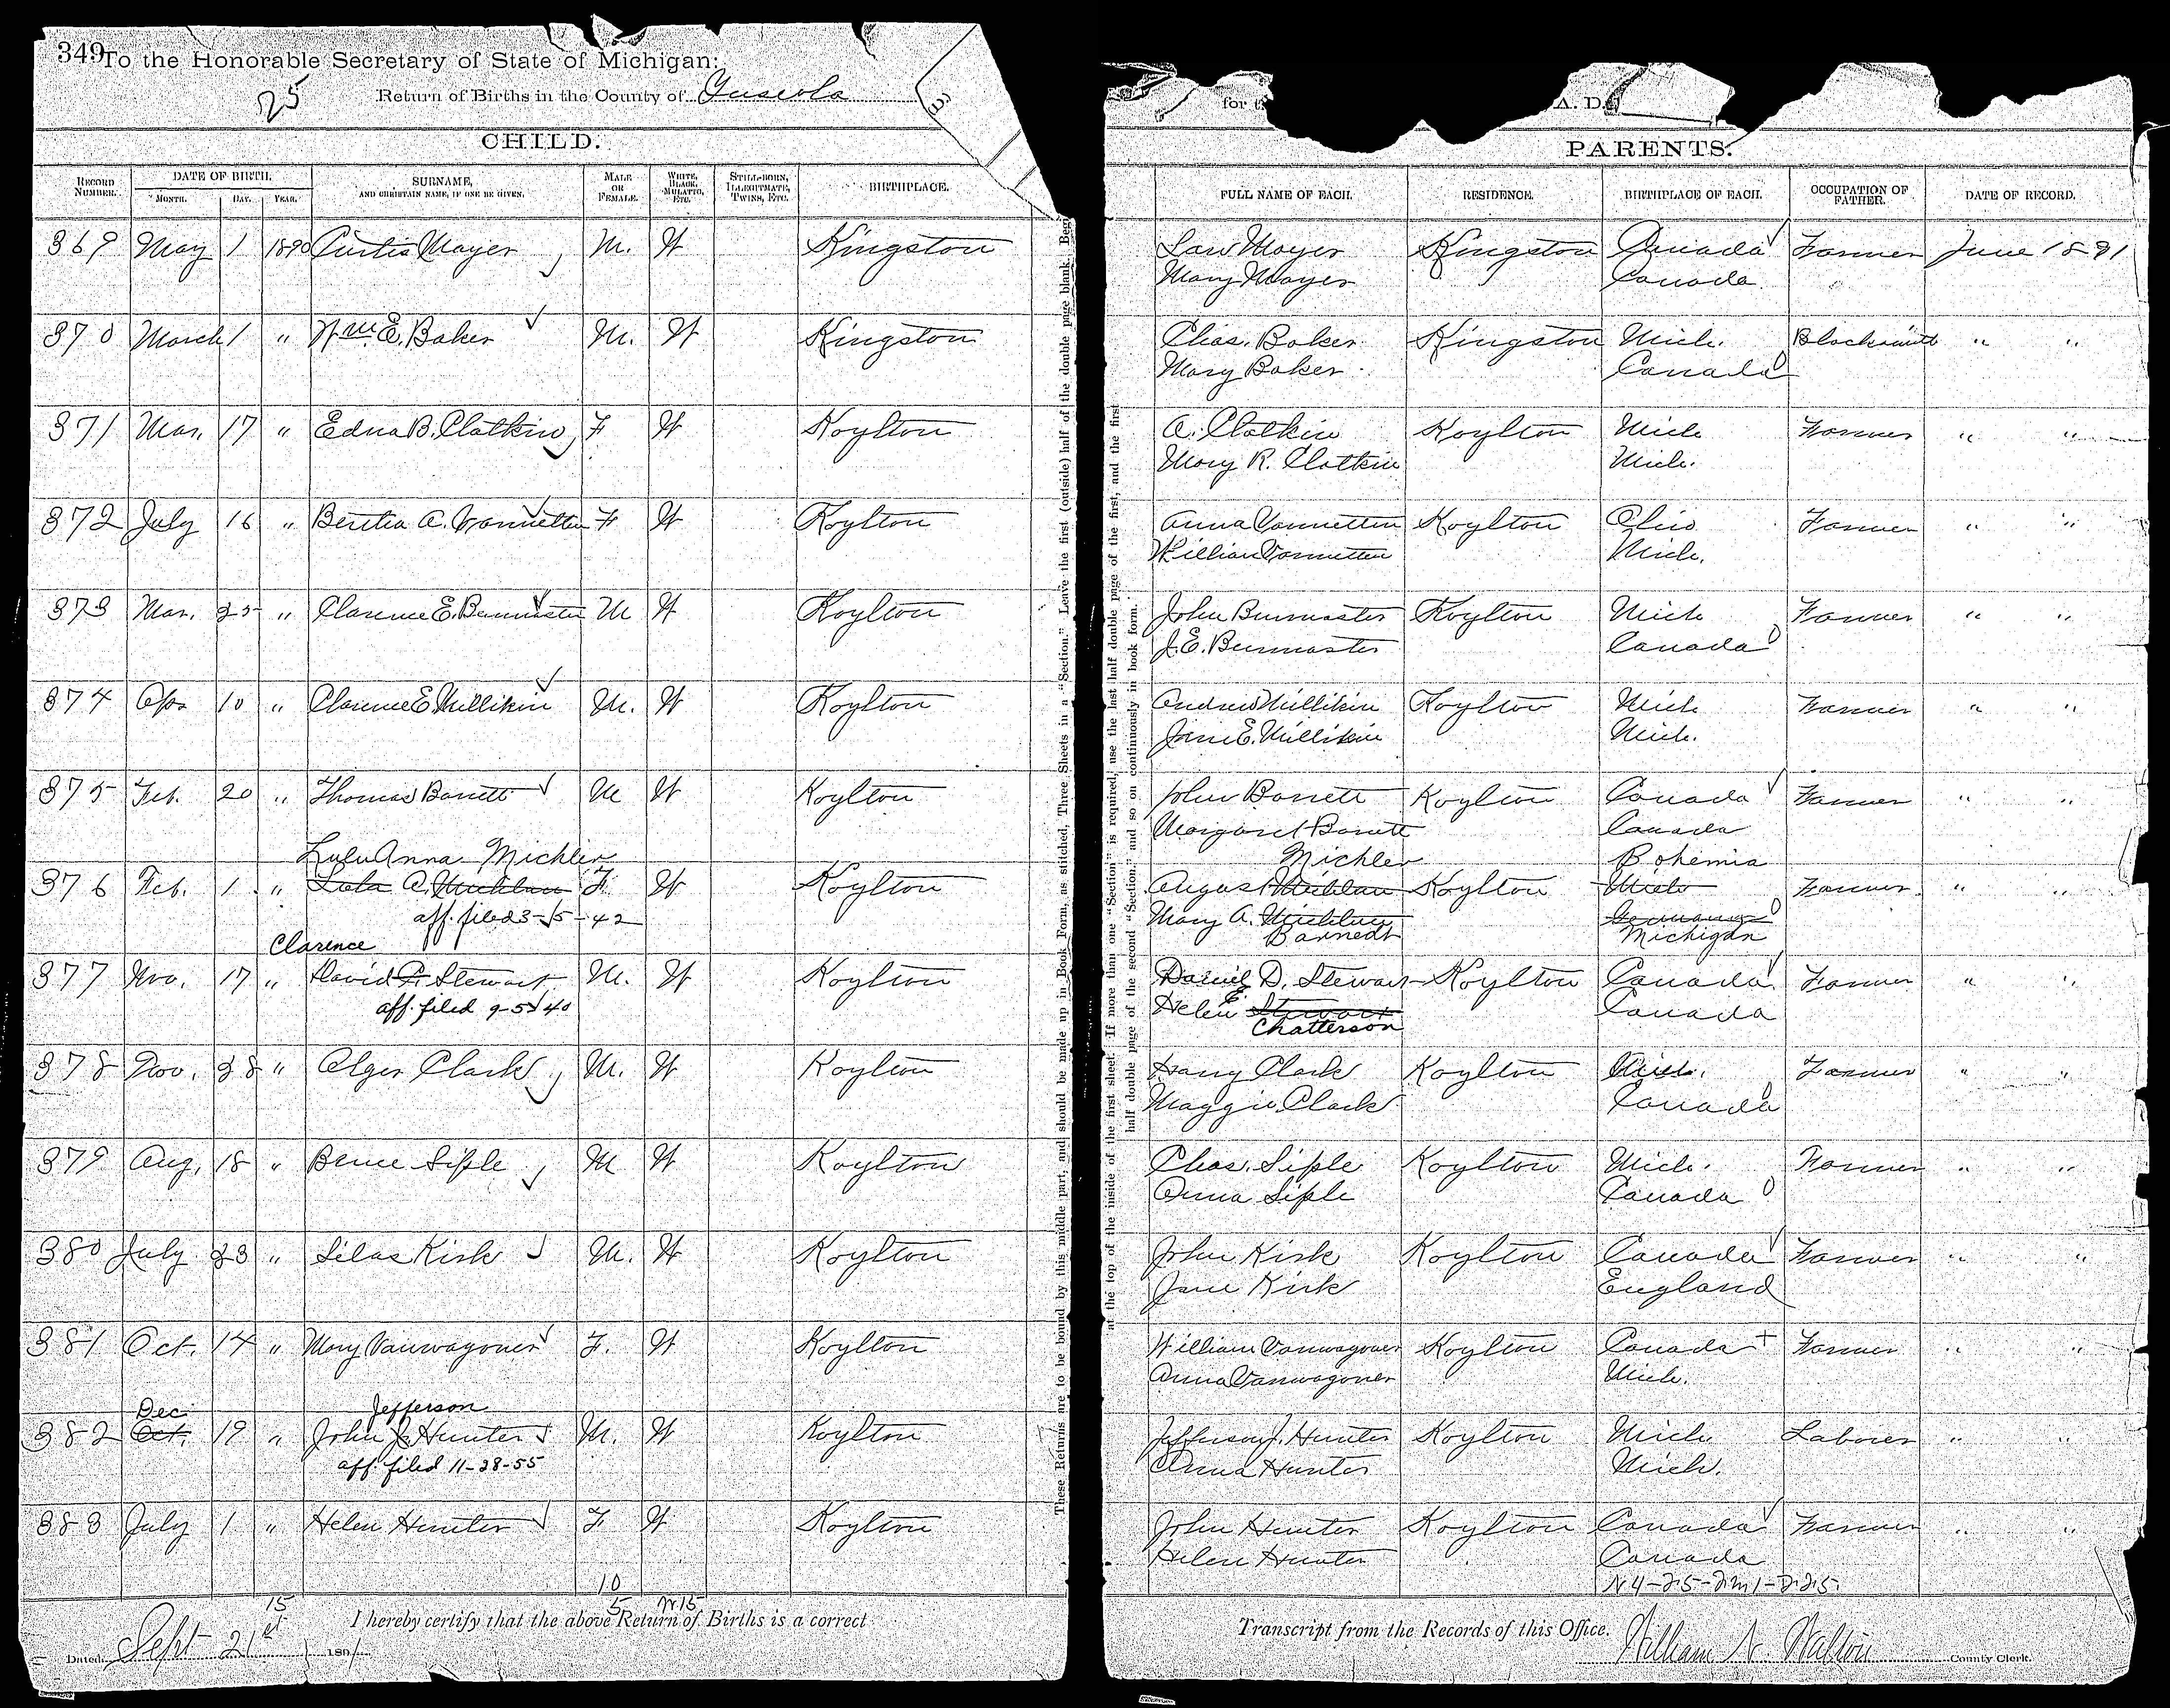 349 To the Honorable Secretary of State of Michigan:
25 Return of Births in the County of Tuscola
for t A. D.
CHILD.
PARENTS.
RECORD NUMBER. DATE OF BIRTH. MONTH. DAY. YEAR. SURNAME, AND CHRISTIAN NAME, IF ONE BE GIVEN. MALE OR FEMALE. WHITE, BLACK, MULATTO, ETC. STILL-BORN, ILLEGITIMATE, TWINS, ETC. BIRTHPLACE.
FULL NAME OF EACH. RESIDENCE. BIRTHPLACE OF EACH. OCCUPATION OF FATHER. DATE OF RECORD.
369 May 1 1890 Curtis Mayer M. W Kingston Mayer Kingston Canada Farmer June 1891
Mary Mayer Canada
370 March 1 " Wm. E. Baker M. W Kingston Chas. Baker Kingston Mich. Blacksmith " "
Mary Baker Canada
371 Mar. 17 " Edna B. Clatkin F W Koylton A. Clatkin Koylton Mich Farmer " "
Mary R. Clatkin Mich.
372 July 16 " Bertha A. Vannetten F W Koylton Anna Vannetten Koylton Ohio Farmer " "
William Vannetten Mich.
373 Mar. 25 " Clarence E. Burmaster M W Koylton John Burmaster Koylton Mich Farmer " "
J. E. Burmaster Canada
374 Apr 10 " Clarence E. Millikin M. W Koylton Andrew Millikin Koylton Mich Farmer " "
Jane E. Millikin Mich.
375 Feb. 20 " Thomas Barrett M W Koylton John Barrett Koylton Canada Farmer " "
Margaret Barrett Canada
Lulu Anna Michler Michler Bohemia
376 Feb. 1 " Lula A. Michlau F. W Koylton August Michlau Koylton Mich Farmer " "
aff. filed 3-15-42 Mary A. Michlau Germany
Barnedt Michigan
Clarence
377 Nov. 17 " David F. Stewart M. W Koylton Daniel D. Stewart Koylton Canada Farmer " "
aff. filed 9-5-40 Helen E Stewart Canada
Chatterson
378 Nov. 28 " Alger Clark M. W Koylton Harry Clark Koylton Mich. Farmer " "
Maggie Clark Canada
379 Aug. 18 " Bruce Siple M W Koylton Chas. Siple Koylton Mich. Farmer " "
Anna Siple Canada
380 July 23 " Silas Kirk M. W Koylton John Kirk Koylton Canada Farmer " "
Jane Kirk England
381 Oct. 14 " Mary Vanwagoner F. W Koylton William Vanwagoner Koylton Canada + Farmer " "
Anna Vanwagoner Mich.
Dec Jefferson
382 Oct. 19 " John J. Hunter M. W Koylton Jefferson J. Hunter Koylton Mich Laborer " "
aff. filed 11-28-55 Anna Hunter Mich.
383 July 1 " Helen Hunter F. W Koylton John Hunter Koylton Canada Farmer " "
Helen Hunter Canada
10 N4-25-2m1-225
15 5 W15
I hereby certify that the above Return of Births is a correct Transcript from the Records of this Office.
Dated Sept 21st 1891 William N. Walton County Clerk.
These Returns are to be bound by this middle part, and should be made up in Book Form, as stitched, Three Sheets in a "Section." Leave the first (outside) half of the double page blank. Beg
at the top of the inside of the first sheet. If more than one "Section" is required, use the last half double page of the first, and the first
half double page of the second "Section," and so on continuously in book form.